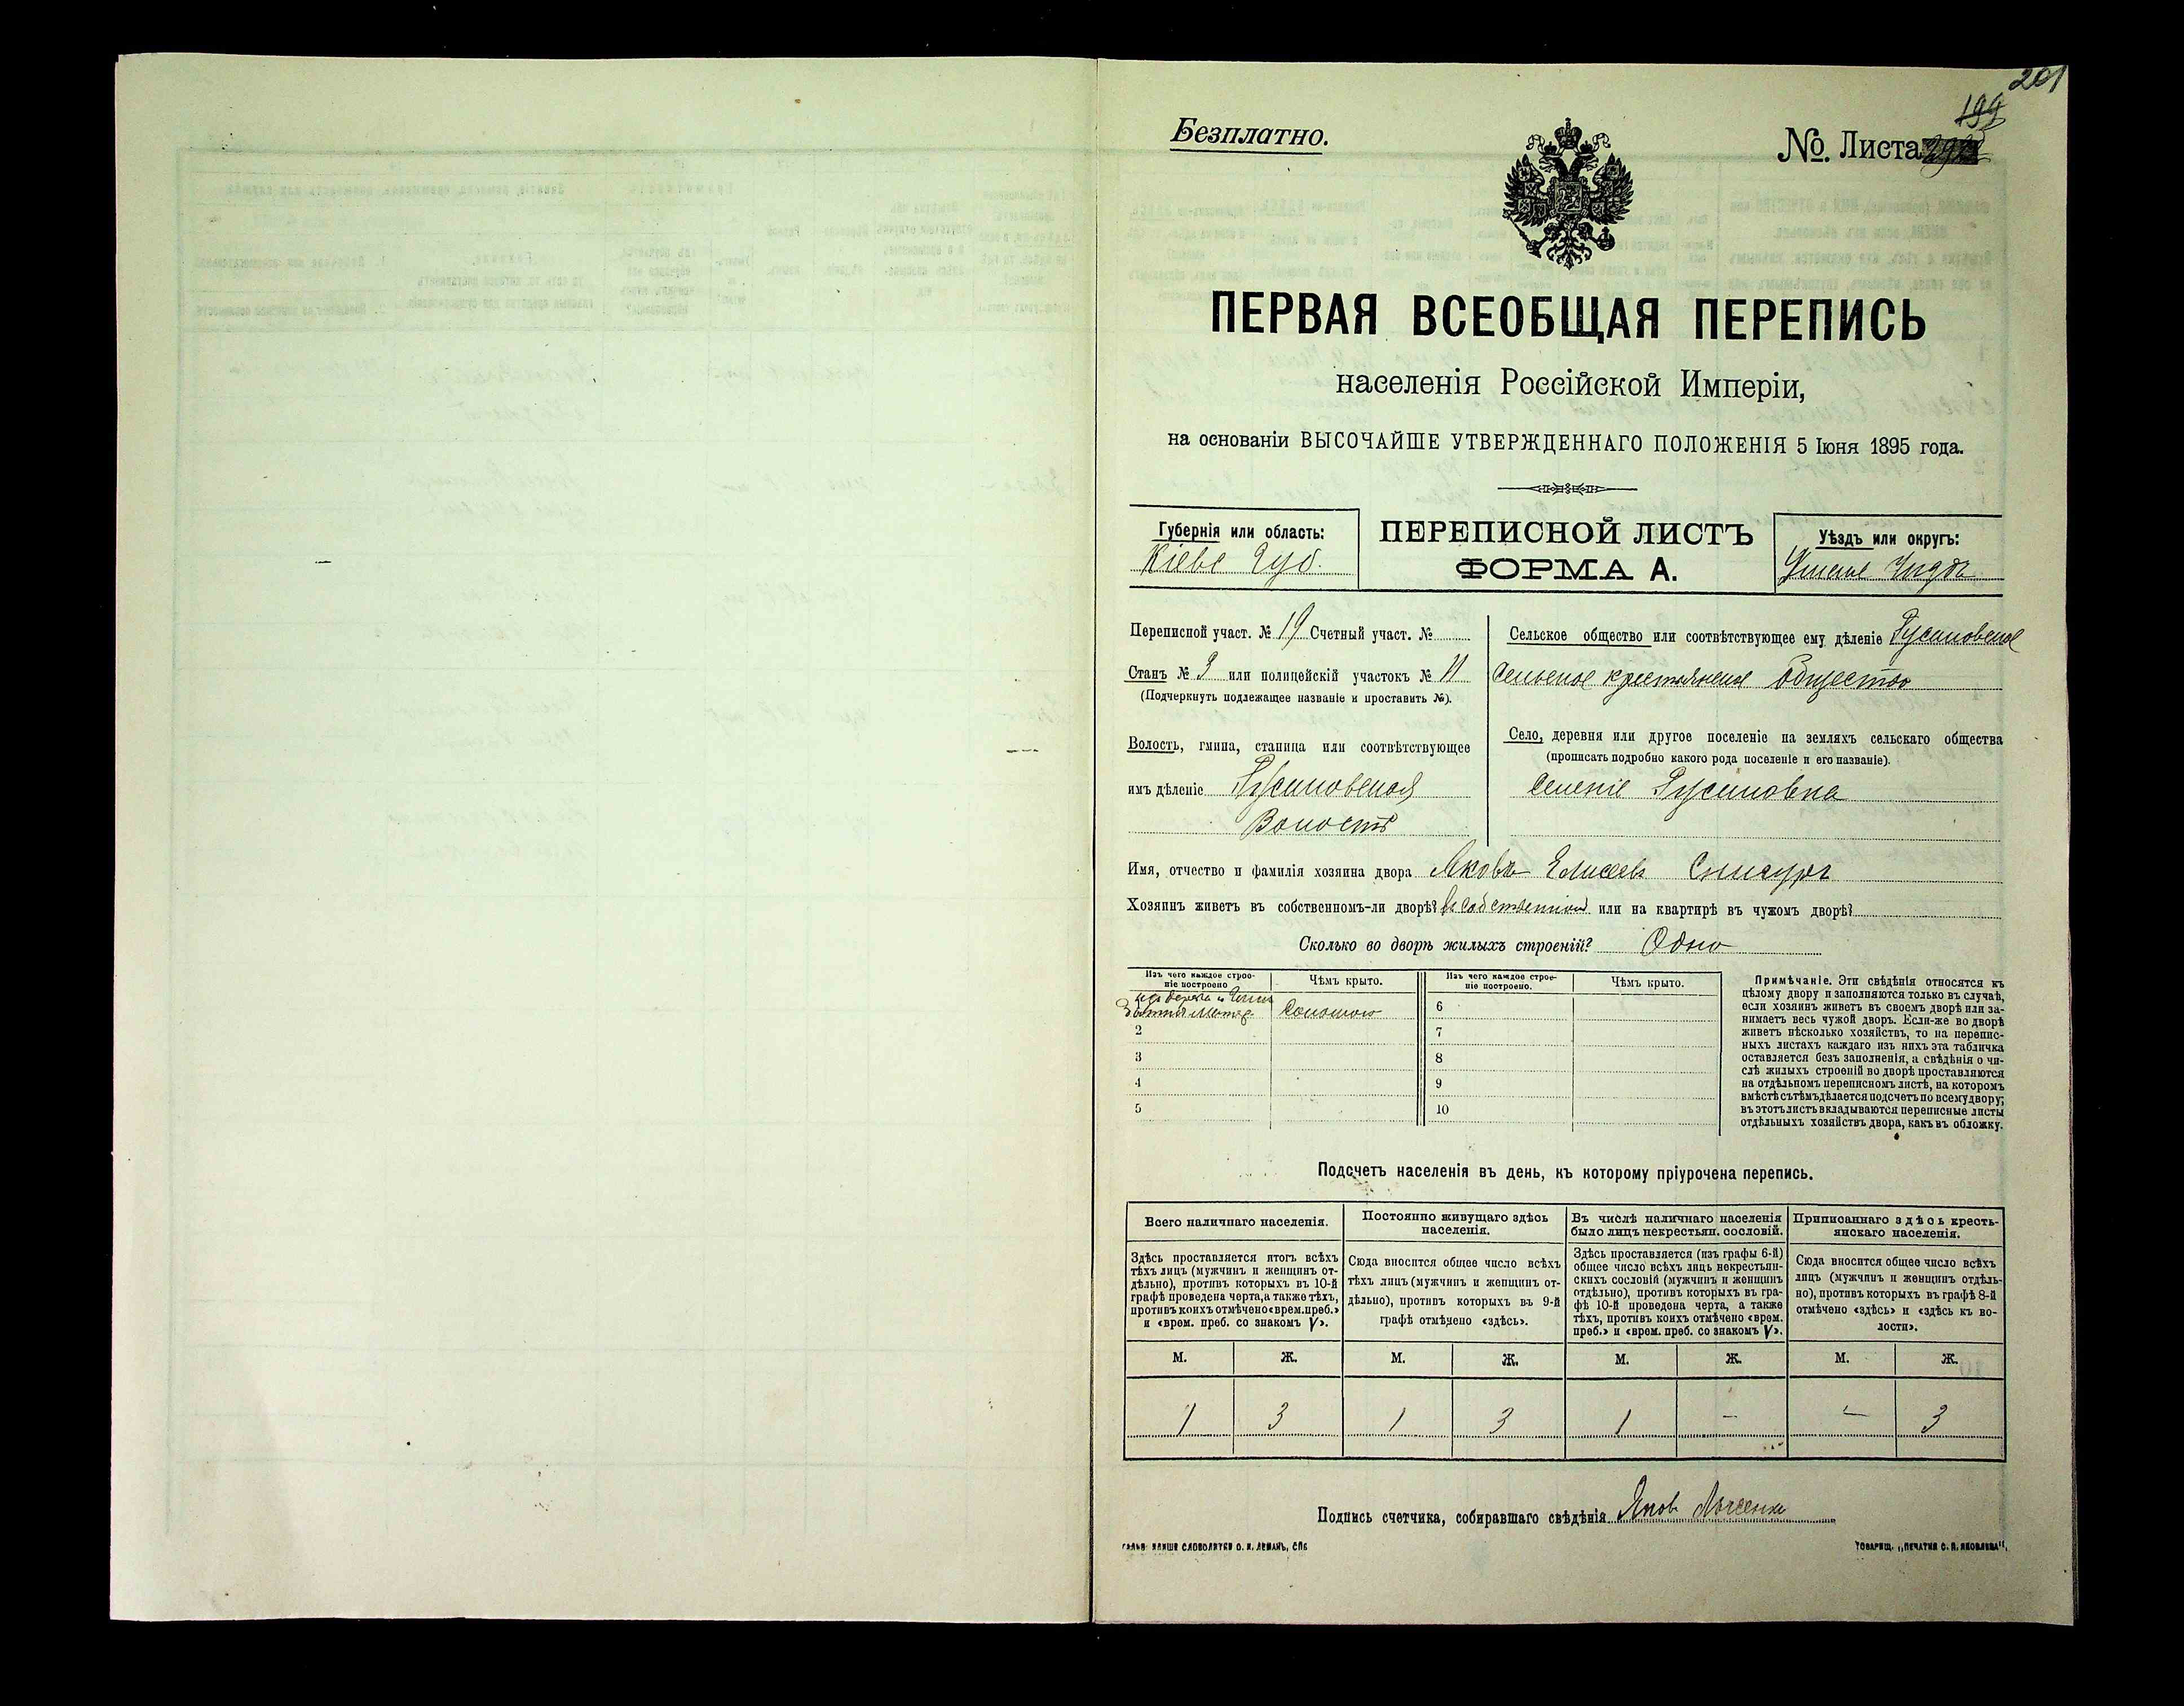 201
199
Безплатно.
№. Листа
ПЕРВАЯ ВСЕОБЩАЯ ПЕРЕПИСЬ
населенія Россійской Имперіи,
на основаніи ВЫСОЧАЙШЕ УТВЕРЖДЕННАГО ПОЛОЖЕНІЯ 5 Іюня 1895 года.
Губернія или область:
Кіевс Губ.
ПЕРЕПИСНОЙ ЛИСТЪ
ФОРМА А.
Уѣздъ или округъ:
Переписной участ. № 19 Счетный участ. №
Станъ № 3 или полицейскій участокъ № 11
(Подчеркнуть подлежащее названіе и проставить №).
Волость, гмина, станица или соотвѣтствующее
имъ дѣленіе Русиловская
Волость
Сельское общество или соотвѣтствующее ему дѣленіе
Сельское крестьянское Общество
Село, деревня или другое поселеніе на земляхъ сельскаго общества
(прописать подробно какого рода поселеніе и его названіе).
Селеніе
Имя, отчество и фамилія хозяина двора Яковъ Елисеевъ
Хозяинъ живетъ въ собственномъ-ли дворѣ? въ собственном или на квартирѣ въ чужомъ дворѣ?
Сколько во дворѣ жилыхъ строеній? Одно
Изъ чего каждое строеніе построено
Чѣмъ крыто.
Изъ чего каждое строеніе построено.
Чѣмъ крыто.
изъ дерева и глины
Соломою
2
3
4
5
6
7
8
9
10
Примѣчаніе. Эти свѣдѣнія относятся къ
цѣлому двору и заполняются только въ случаѣ,
если хозяинъ живетъ въ своемъ дворѣ или за-
нимаетъ весь чужой дворъ. Если-же во дворѣ
живетъ нѣсколько хозяйствъ, то на перепис-
ныхъ листахъ каждаго изъ нихъ эта табличка
оставляется безъ заполненія, а свѣдѣнія о чи-
слѣ жилыхъ строеній во дворѣ проставляются
на отдѣльномъ переписномъ листѣ, на которомъ
вмѣстѣ съ тѣмъ дѣлается подсчетъ по всему двору;
въ этотъ листъ вкладываются переписные листы
отдѣльныхъ хозяйствъ двора, какъ въ обложку.
Подсчетъ населенія въ день, къ которому пріурочена перепись.
Всего наличнаго населенія.
Здѣсь проставляется итогъ всѣхъ
тѣхъ лицъ (мужчинъ и женщинъ от-
дѣльно), противъ которыхъ въ 10-й
графѣ проведена черта, а также тѣхъ,
противъ коихъ отмѣчено «врем. преб.»
и «врем. преб. со знакомъ V».
Постоянно живущаго здѣсь
населенія.
Сюда вносится общее число всѣхъ
тѣхъ лицъ (мужчинъ и женщинъ от-
дѣльно), противъ которыхъ въ 9-й
графѣ отмѣчено «здѣсь».
Въ числѣ наличнаго населенія
было лицъ некрестьян. сословій.
Здѣсь проставляется (изъ графы 6-й)
общее число всѣхъ лицъ некрестьян-
скихъ сословій (мужчинъ и женщинъ
отдѣльно), противъ которыхъ въ гра-
фѣ 10-й проведена черта, а также
тѣхъ, противъ коихъ отмѣчено «врем.
преб.» и «врем. преб. со знакомъ V».
Приписаннаго здѣсь кресть-
янскаго населенія.
Сюда вносится общее число всѣхъ
лицъ (мужчинъ и женщинъ отдѣль-
но), противъ которыхъ въ графѣ 8-й
отмѣчено «здѣсь» и «здѣсь къ во-
лости».
М. Ж. М. Ж. М. Ж. М. Ж.
1 3 1 3 1 — — 3
Подпись счетчика, собиравшаго свѣдѣнія Яковъ
СЛОВОЛИТНИ О. И. ЛЕМАНЪ, СПБ
ТОВАРИЩ. „ПЕЧАТНЯ С. П. ЯКОВЛЕВА“.